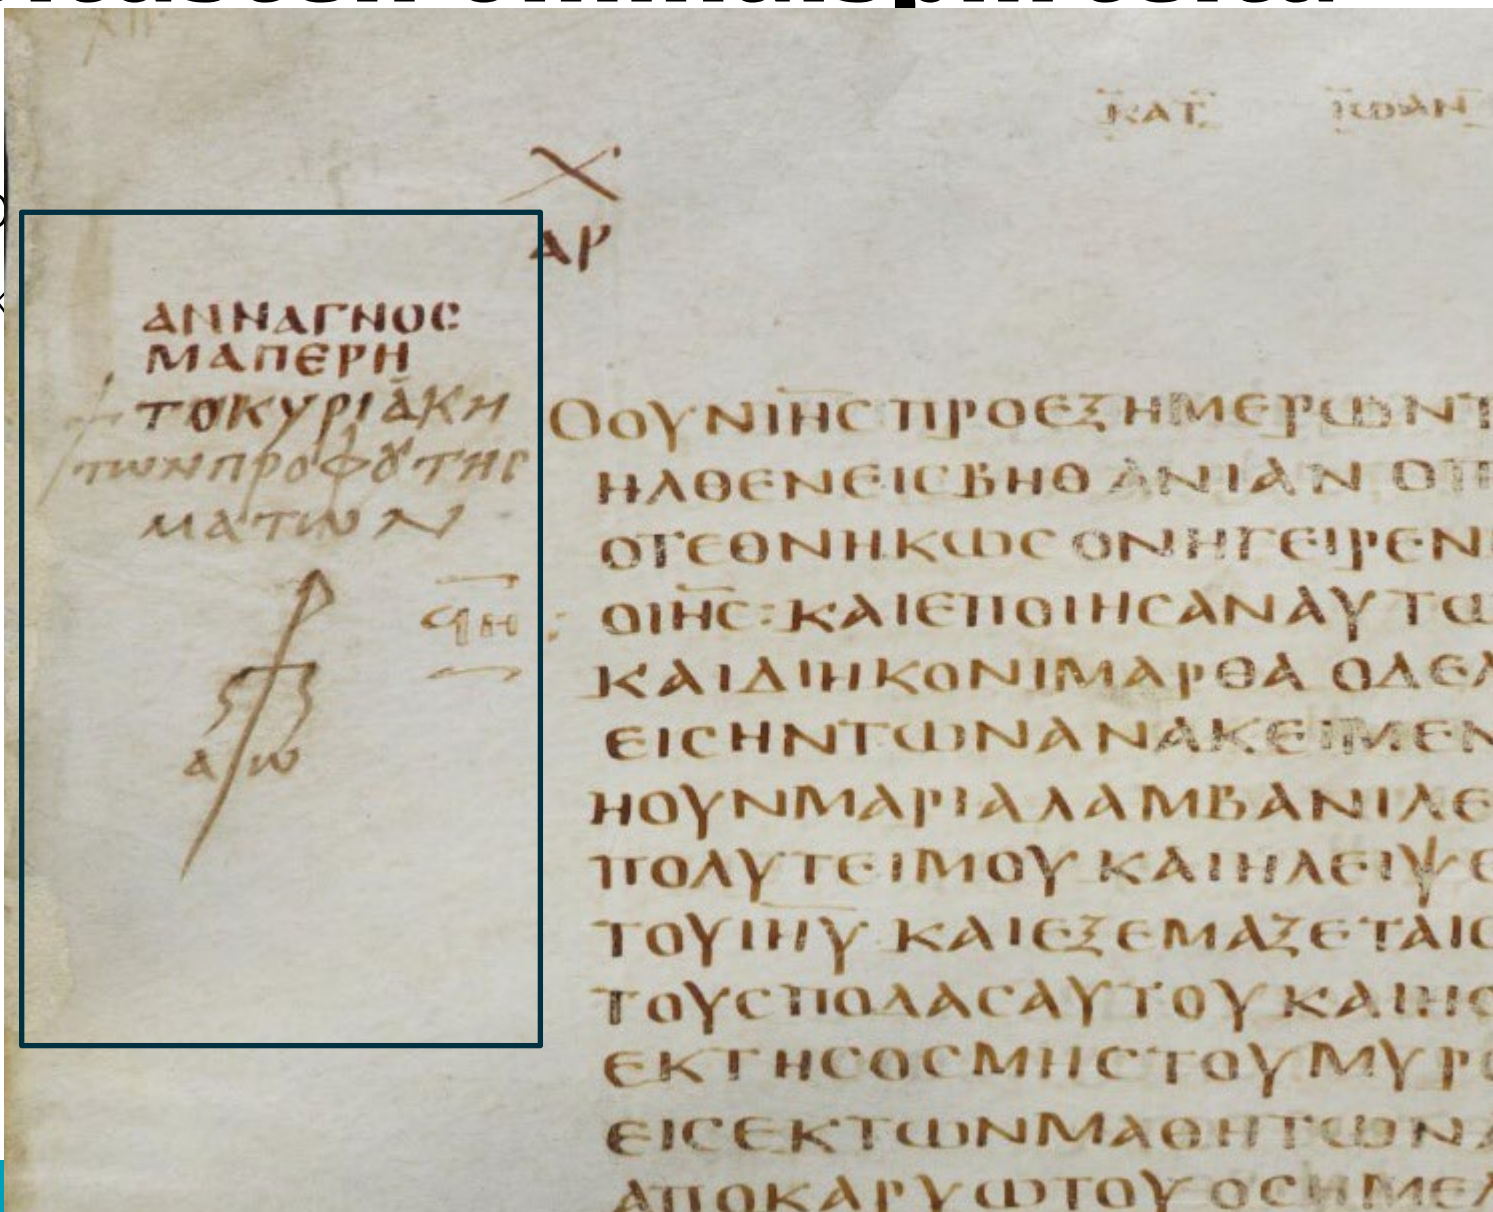 ΚΑΤ ΙΩΑΝ
Χ
ΑΡ
ΑΝΝΑΓΝΟС
ΜΑΠΕΡΗ
ΤΟΚΥΡΙΑΚΗ
ΤΩΝΠΡΟΦΟΥΤΗС
ΜΑΤΩΝ
ϤΗ
α ω
ΟΟΥΝΙΗС ΠΡΟΕΞΗΜΕΡΩΝΤ
ΗΛΘΕΝΕΙСΒΗΘΑΝΙΑΝ ΟΠ
ΟΤΕΘΝΗΚΩС ΟΝΗΓΕΙΡΕΝ
ΟΙΗС: ΚΑΙΕΠΟΙΗСΑΝΑΥΤΩ
ΚΑΙΔΙΗΚΟΝΙΜΑΡΘΑ ΟΔΕΛ
ΕΙСΗΝΤΩΝΑΝΑΚΕΙΜΕΝ
ΗΟΥΝΜΑΡΙΑΛΑΜΒΑΝΙΛΕ
ΠΟΛΥΤΕΙΜΟΥ ΚΑΙΗΛΕΙΨΕ
ΤΟΥΙΗΥ ΚΑΙΕΞΕΜΑΞΕΤΑΙС
ΤΟΥСΠΟΔΑСΑΥΤΟΥ ΚΑΙΗΟ
ΕΚΤΗСΟСΜΗСΤΟΥΜΥΡΟ
ΕΙСΕΚΤΩΝΜΑΘΗΤΩΝ
ΑΠΟΚΑΡΥΩΤΟΥ ΟСΗΜΕΛ